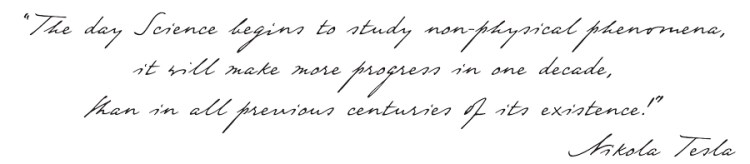 "The day Science begins to study non-physical phenomena,
it will make more progress in one decade,
than in all previous centuries of its existence!"
Nikola Tesla